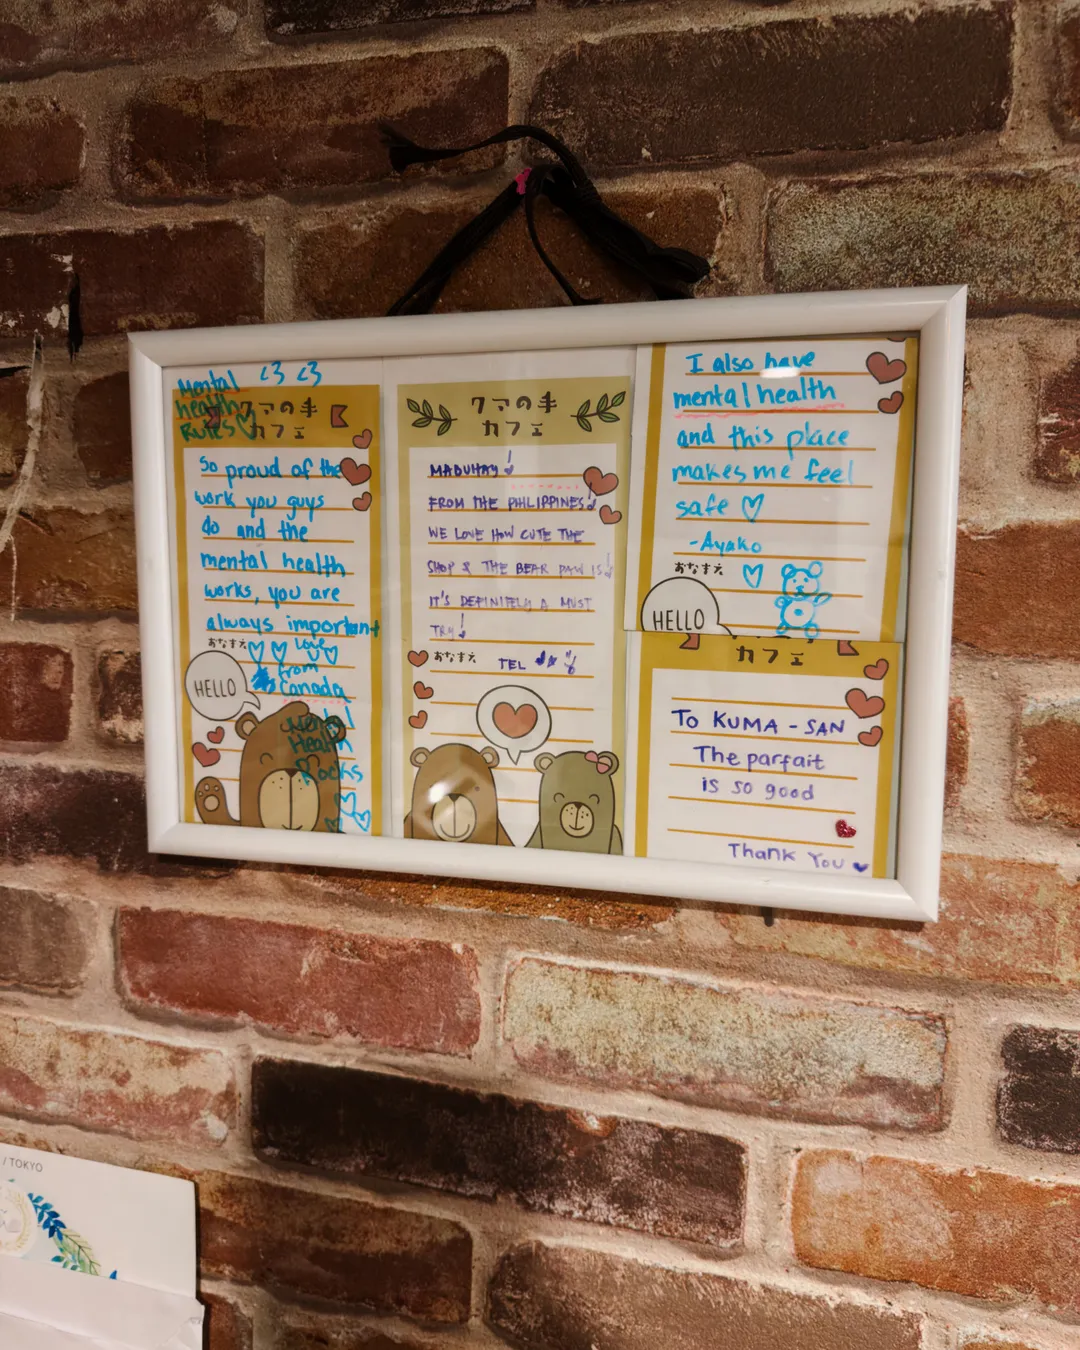 Mental <3 <3
health
Rules
クマの手
カフェ
So proud of the
work you guys
do and the
mental health
works, you are
always important
おなまえ
Love
from
Canada
HELLO
Mental
Health
Rocks
クマの手
カフェ
MABUHAY!
FROM THE PHILIPPINES!
WE LOVE HOW CUTE THE
SHOP & THE BEAR PAW IS!
IT'S DEFINITELY A MUST
TRY!
おなまえ TEL
I also have
mental health
and this place
makes me feel
safe ♡
-Ayako
おなまえ
HELLO
カフェ
TO KUMA-SAN
The parfait
is so good
Thank You
/ TOKYO